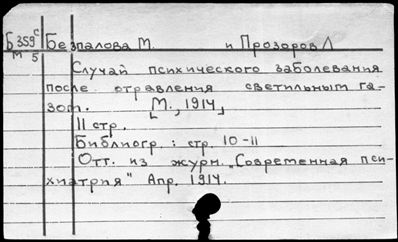 Б 359 с Безпалова М. и Прозоров Л
м 5
Случай психического заболевания
после отравления светильным га-
зом. [М., 1914]
11 стр.
Библиогр.: стр. 10-11
Отт. из журн. „Современная пси-
хиатрия" Апр. 1914.